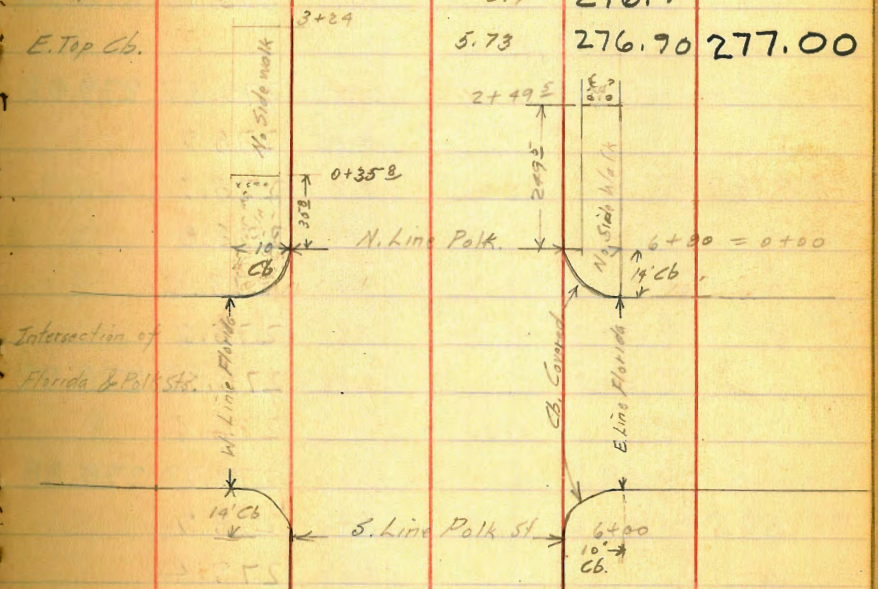 3+24
E. Top Cb. 5.73 276.90 277.00
No Sidewalk
2+49 5
249 5
No Side Walk
0+35 8
35 8
N. Line Polk.
6+80 = 0+00
10
Cb
14' Cb.
Intersection of
Florida & Polk Sts.
W. Line Florida
Cb. Covered
E. Line Florida
14' Cb
S. Line Polk St
6+00
10'
Cb.